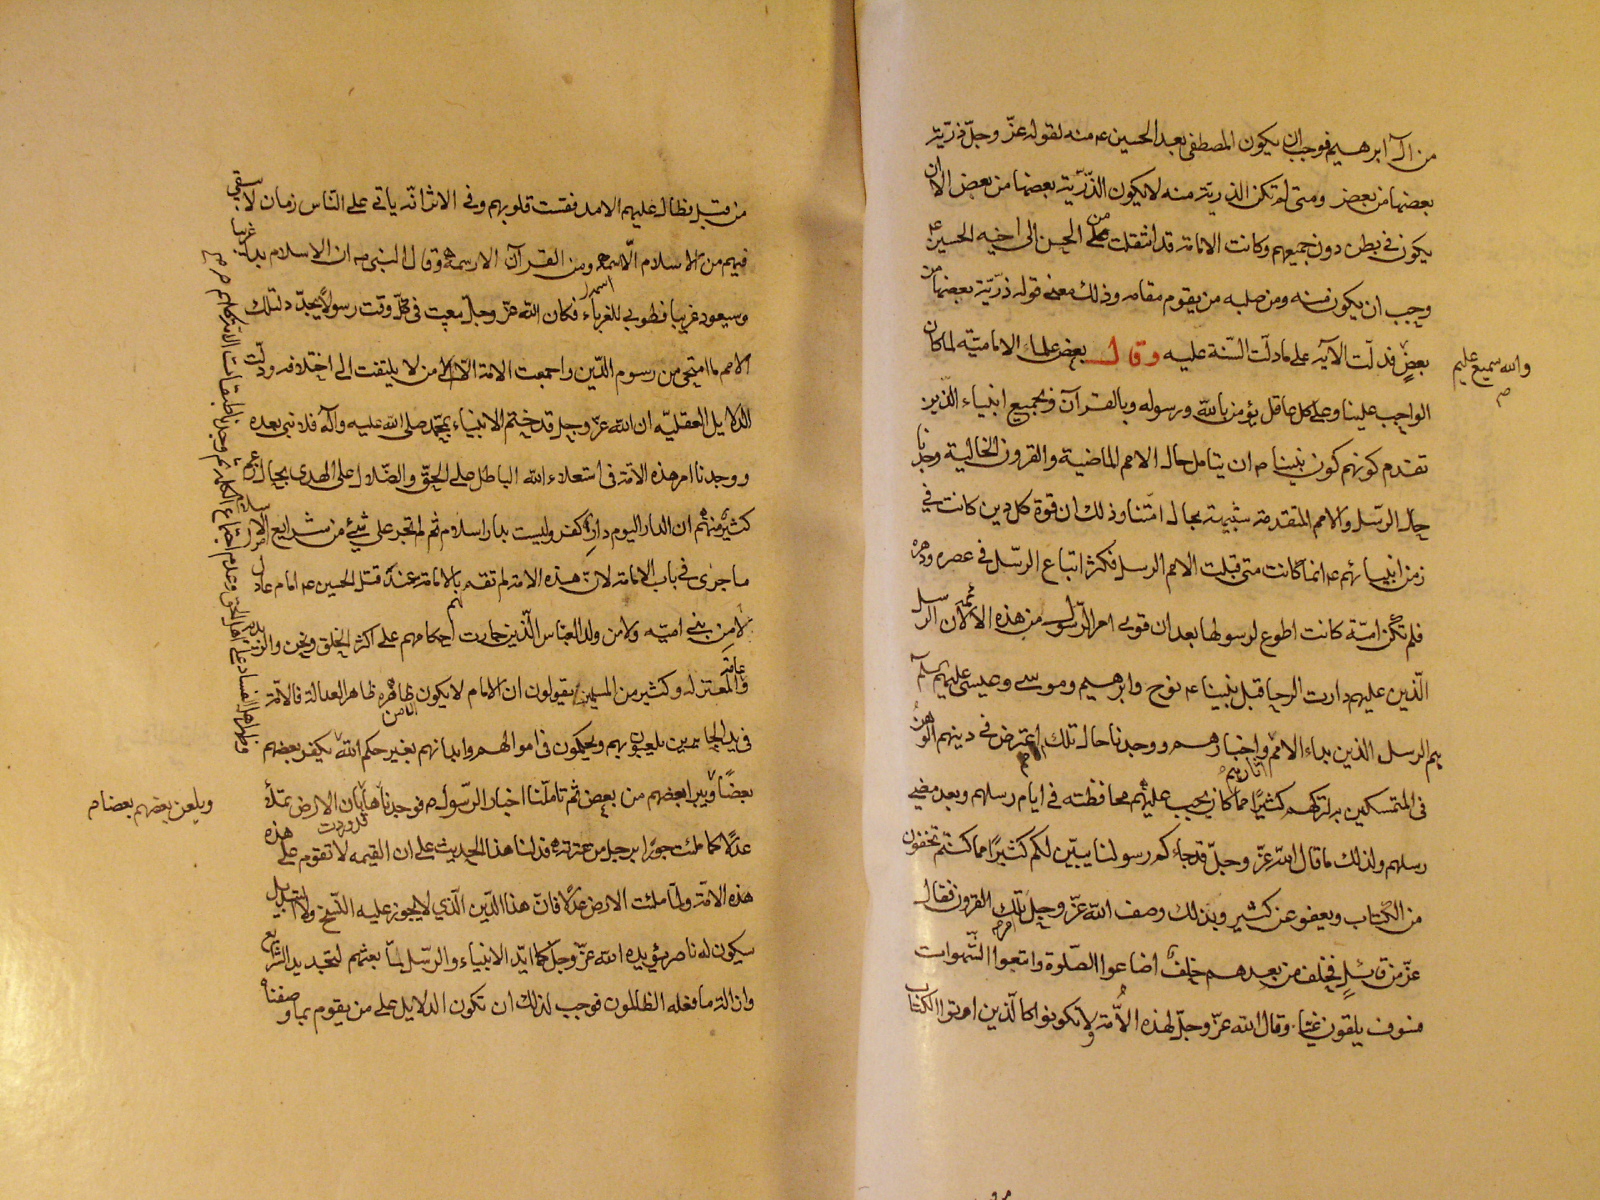 من آل ابرهيم فوجب ان يكون المصطفى بعد الحسين ع منه لقوله عزّ وجلّ ذرّيّة
بعضها من بعض ومتى لم تكن الذرية منه لا يكون الذّرّيّة بعضها من بعض الا ان
يكون في بطن دون جميعهم وكانت الامامة قد انتقلت من الحسن الى اخيه الحسين ع
وجب ان يكون منه ومن صلبه من يقوم مقامه وذلك معنى قوله ذرّيّة بعضها من
بعضٍ فدلّت الآية على ما دلّت السّنة عليه وقال بعض علماء الاماميّة لما كان
والله سميع عليم
الواجب علينا وعلى كل عاقل يؤمن بالله ورسوله وبالقرآن وبجميع انبياء الّذين
تقدم كونهم كون نبينا ص ان يتامل حال الامم الماضية والقرون الخالية وجدنا
حال الرّسل والامم المتقدمة شبيهة بحال امّتنا وذلك ان قوة كل دين كانت في
زمن انبيائهم ع انما كانت متى قبلت الامم الرسل فكثر اتباع الرّسل في عصره ودهره
فلم تكن امّة كانت اطوع لرسولها بعد ان قوى امر الرّسول من هذه الامة لان الرسل
الّذين عليهم دارت الرحا قبل نبينا ع نوح وابرهيم وموسى وعيسى عليهم
هم الرسل الذين بداء الامم واخبارهم ووجدنا حال تلك الامم اعترض في دينهم الوهن
آثارهم
في المتمسكين به لتركهم كثيرًا مما كان يجب عليهم محافظته في ايام رسلهم وبعد مضي
رسلهم ولذلك ما قال الله عزّ وجلّ قد جاءكم رسولنا يبيّن لكم كثيرًا مما كنتم تخفون
من الكتاب ويعفو عن كثير وبذلك وصف الله عزّ وجلّ تلك القرون فقال
عزّ من قائلٍ فخلف من بعدهم خلفٌ اضاعوا الصّلوة واتبعوا الشّهوات
فسوف يلقون غيّا وقال الله عزّ وجلّ لهذه الأمّة ولا تكونوا كالّذين اوتوا الكتاب
من قبل فطال عليهم الامد فقست قلوبهم وفي الاثر انّه ياتي على النّاس زمان لا يبقى
فيهم من الاسلام الّا اسمه ومن القرآن الا رسمه وقال النبي ص ان الاسلام بدا غريبا
وسيعود غريبا فطوبى للغرباء فكان الله عزّ وجلّ مبعث في كلّ وقت رسولًا يجدّد لتلك
الامم ما امتحى من رسوم الدّين واجمعت الامة الّا من لا يلتفت الى اختلافه ودلّت
الدلايل العقليّه ان الله عزّ وجل قد ختم الانبياء بمحمّد صلى الله عليه وآله فلا نبي بعده
ووجدنا امر هذه الامّة في استعلاء الله الباطل على الحقّ والضّلال على الهدى بحال
كثير منهم ان الدار اليوم دار كفر وليست بدار اسلام ثم لم تجر على شيء من شرايع الاسلام
ما جرى في باب الامامة لانّ هذه الامة لم تقم بالامامة عنده قتل الحسين ع امام عادل
لا من بني اميّه ولا من ولد العبّاس الّذين جارت احكامهم على اكثر الخلق ونحن والزيديه
والمعتزله وكثير من المسلمين يقولون ان الامام لا يكون ظاهره ظاهر العدالة فالامّة
في يد الجايرين يلعبون بهم ويحكمون في اموالهم وابدانهم بغير حكم الله يكفر بعضهم
بعضًا ويبرا بعضهم من بعض ثم تاملنا اخبار الرّسول ص فوجدناها بان الارض تملأ
ويلعن بعضهم بعضا م
عدلًا كما ملئت جورًا برجل من عترته فدلنا هذا الحديث على ان القيمه لا تقوم على هذه
هذه الامّة ولمّا ملئت الارض عدلًا فانّ هذا الدّين الّذي لا يجوز عليه النّسخ ولا التبديل
سيكون له ناصر يؤيده الله عزّ وجلّ كما ايّد الانبياء والرّسل لما بعثهم لتجديد الشرايع
وازالة ما فعله الظالمون فوجب لذلك ان تكون الدلايل على من يقوم بما وصفناه